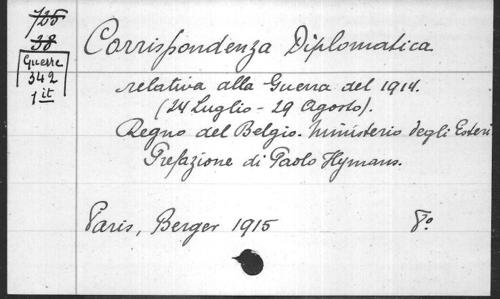 725
38
Guerre
342
1 it
Corrispondenza Diplomatica
relativa alla Guerra del 1914.
(24 Luglio - 29 Agosto).
Regno del Belgio. Ministerio degli Esteri
Prefazione di Paolo Hymans.
Paris, Berger 1915 8°